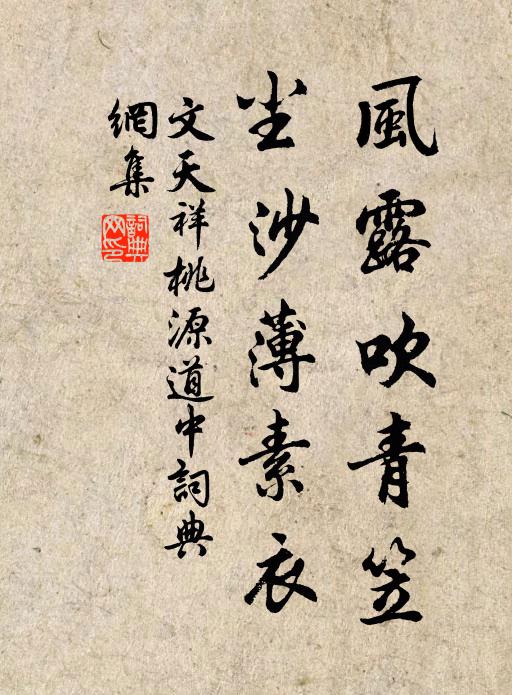 風露吹青笠
尘沙薄素衣
文天祥桃源道中詞典
網集
詞典網印